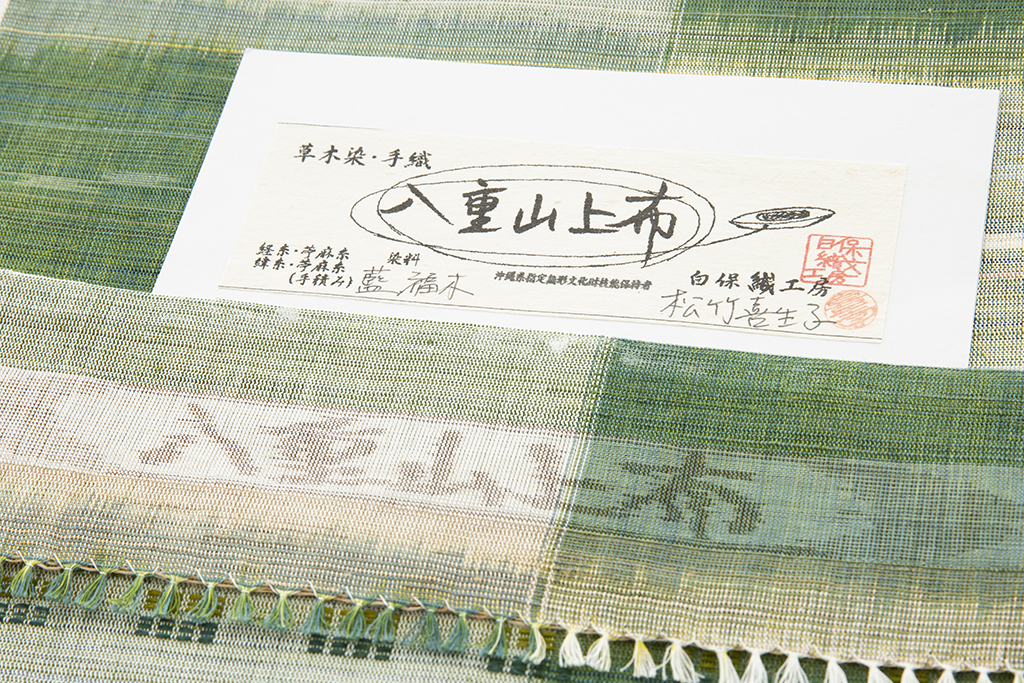 草木染・手織
八重山上布
経糸・苧麻糸
緯糸・苧麻糸
(手積み)
染料
藍 福木
沖縄県指定無形文化財技能保持者
白保織工房
松竹喜生子
白保織工房
八重山上布